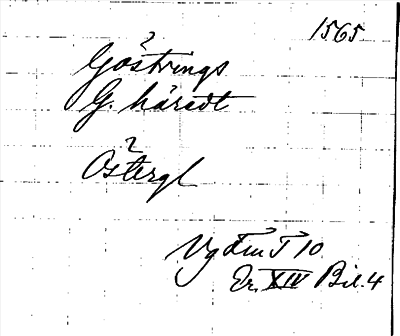 1565
Göstrings
G. häredt
Östergl
Vg Fm T 10
Er. XIV Bil. 4